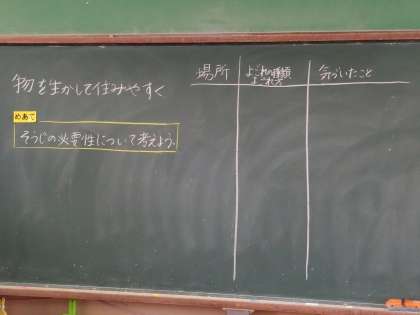 物を生かして住みやすく
めあて
そうじの必要性について考えよう。
場所
よごれの種類
よごれ方
気づいたこと